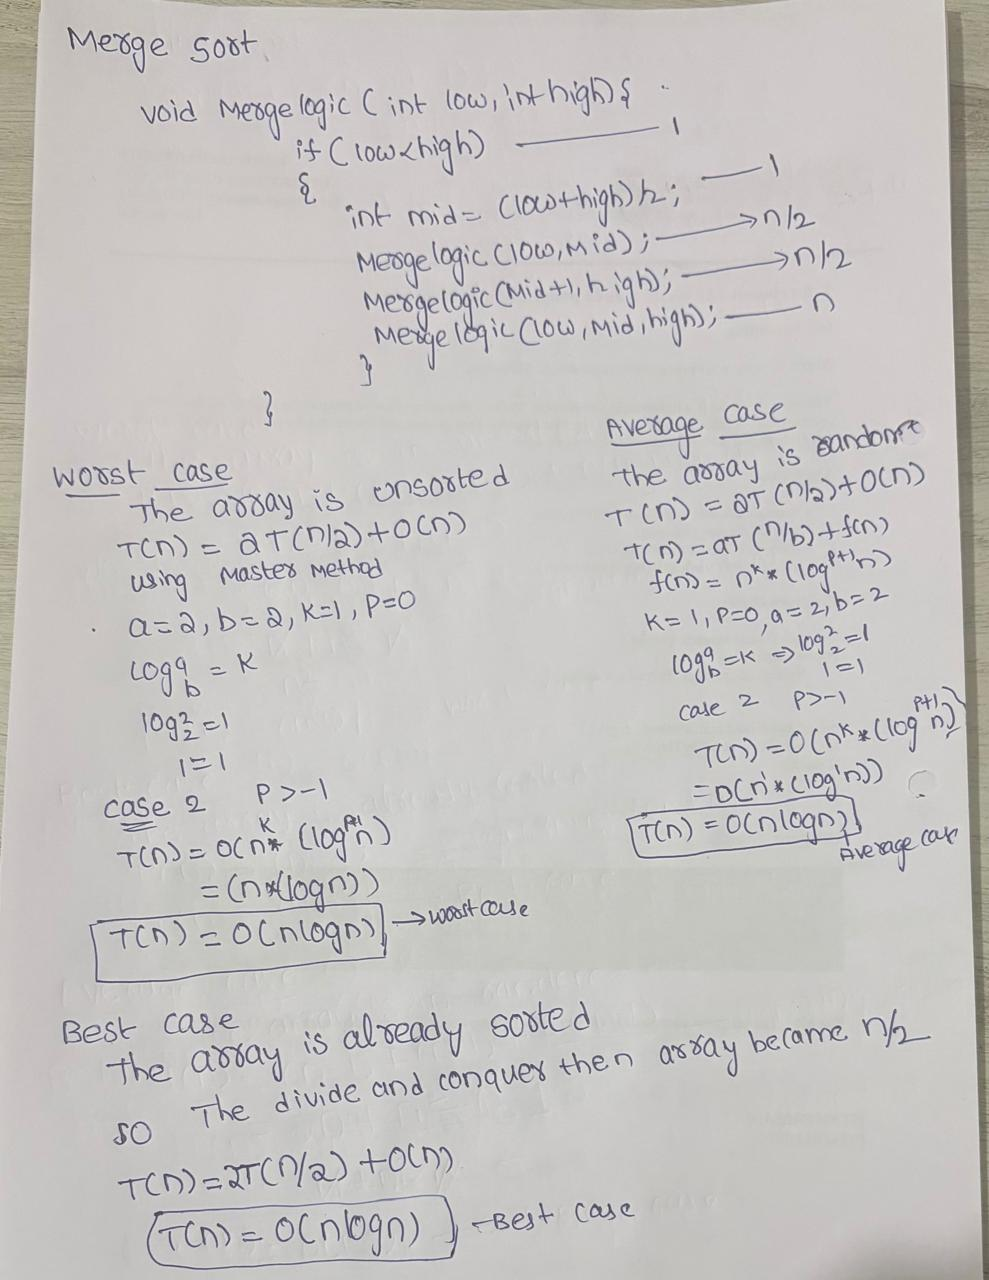 Merge sort
void Mergelogic (int low, int high) {
if (low<high) — 1
{
int mid = (low+high)/2; — 1
Mergelogic (low, Mid); → n/2
Mergelogic (Mid+1, high); → n/2
Mergelogic (low, Mid, high); — n
}
}
Worst case
The array is unsorted
T(n) = 2T(n/2)+O(n)
using Master Method
a=2, b=2, k=1, P=0
log a b = k
log 2 2 = 1
1=1
case 2 P>-1
T(n) = O(n^k * (log^P+1 n)
= (n*(logn))
T(n) = O(nlogn) → worst case
Average case
The array is random
T(n) = 2T(n/2)+O(n)
T(n) = aT(n/b)+f(n)
f(n) = n^k * (log^P+1 n)
K=1, P=0, a=2, b=2
log a b = k ⇒ log 2 2 = 1
1=1
case 2 P>-1
T(n) = O(n^k * (log^P+1 n)}
= O(n^1 * (log^1 n))
T(n) = O(nlogn)
Average case
Best case
The array is already sorted
so The divide and conquer then array became n/2
T(n) = 2T(n/2) + O(n)
T(n) = O(nlogn) - Best case